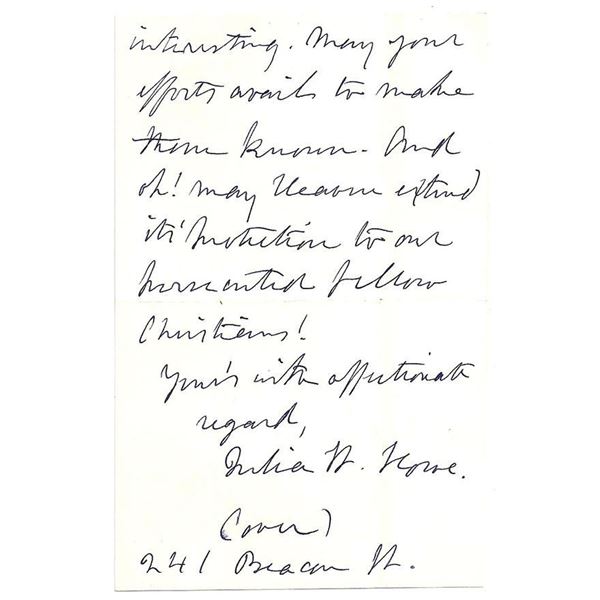 interesting. May your
efforts avail to make
them known. And
oh! may Heaven extend
its' protection to our
persecuted fellow
Christians!
Your's with affectionate
regard,
Julia W. Howe.
(over)
241 Beacon St.